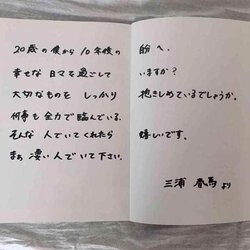 20歳の僕から10年後の
自分へ。
幸せな日々を過ごして
いますか?
大切なものを しっかり
抱きしめているでしょうか。
何事も全力で臨んでいる、
そんな人でいてくれたら
嬉しいです。
まぁ 凄い人でいて下さい。
三浦 春馬より